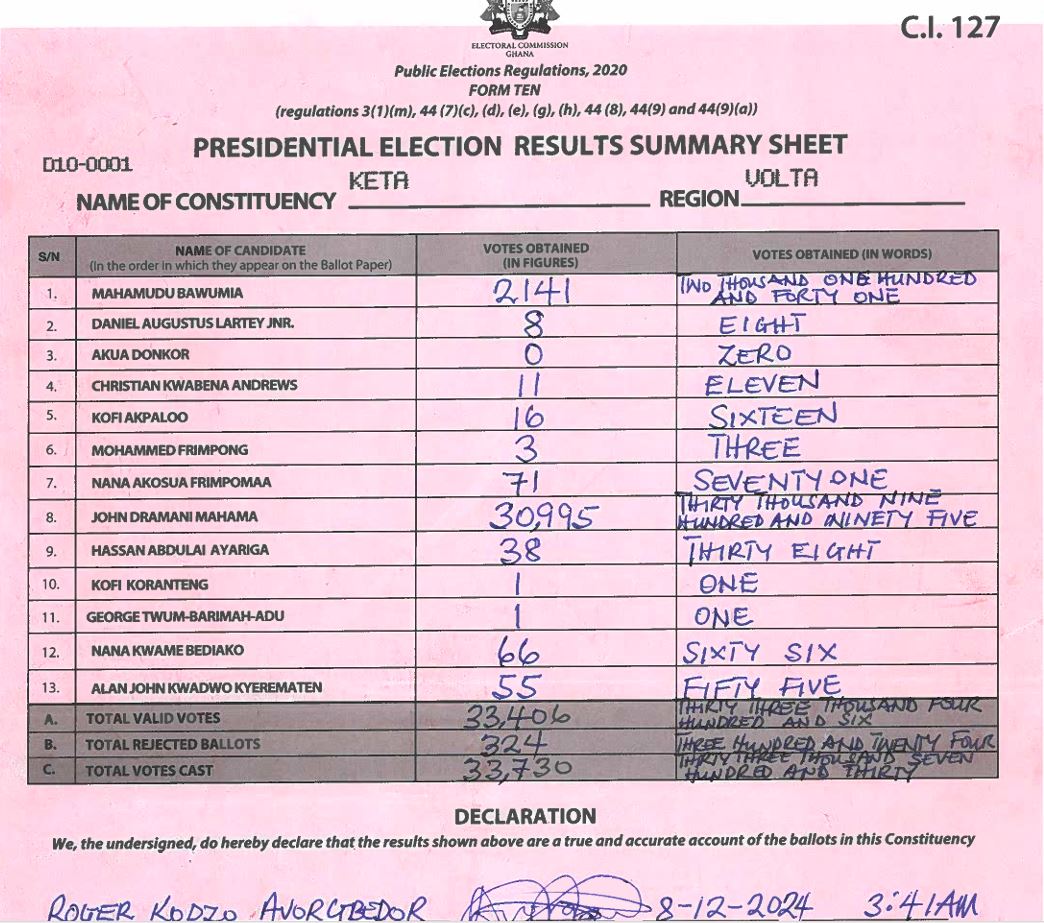 ELECTORAL COMMISSION
GHANA
C.I. 127
Public Elections Regulations, 2020
FORM TEN
(regulations 3(1)(m), 44 (7)(c), (d), (e), (g), (h), 44 (8), 44(9) and 44(9)(a))
PRESIDENTIAL ELECTION RESULTS SUMMARY SHEET
D10-0001
NAME OF CONSTITUENCY KETA REGION VOLTA
S/N NAME OF CANDIDATE (In the order in which they appear on the Ballot Paper) VOTES OBTAINED (IN FIGURES) VOTES OBTAINED (IN WORDS)
1. MAHAMUDU BAWUMIA 2141 TWO THOUSAND ONE HUNDRED AND FORTY ONE
2. DANIEL AUGUSTUS LARTEY JNR. 8 EIGHT
3. AKUA DONKOR 0 ZERO
4. CHRISTIAN KWABENA ANDREWS 11 ELEVEN
5. KOFI AKPALOO 16 SIXTEEN
6. MOHAMMED FRIMPONG 3 THREE
7. NANA AKOSUA FRIMPOMAA 71 SEVENTY ONE
8. JOHN DRAMANI MAHAMA 30,995 THIRTY THOUSAND NINE HUNDRED AND NINETY FIVE
9. HASSAN ABDULAI AYARIGA 38 THIRTY EIGHT
10. KOFI KORANTENG 1 ONE
11. GEORGE TWUM-BARIMAH-ADU 1 ONE
12. NANA KWAME BEDIAKO 66 SIXTY SIX
13. ALAN JOHN KWADWO KYEREMATEN 55 FIFTY FIVE
A. TOTAL VALID VOTES 33,406 THIRTY THREE THOUSAND FOUR HUNDRED AND SIX
B. TOTAL REJECTED BALLOTS 324 THREE HUNDRED AND TWENTY FOUR
C. TOTAL VOTES CAST 33,730 THIRTY THREE THOUSAND SEVEN HUNDRED AND THIRTY
DECLARATION
We, the undersigned, do hereby declare that the results shown above are a true and accurate account of the ballots in this Constituency
ROGER KODZO AVORGBEDOR 8-12-2024 3:41AM